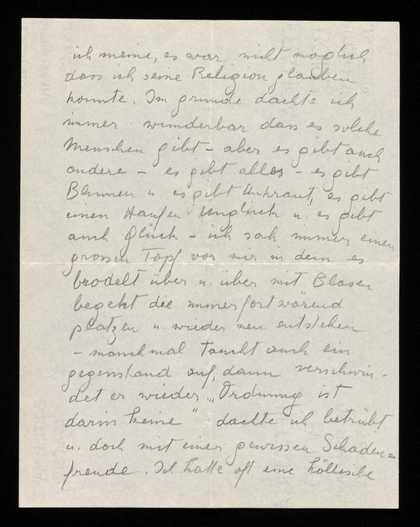 ich meine, es war nicht möglich
dass ich seine Religion glauben
konnte. Im grunde dachte ich
immer wunderbar dass es solche
Menschen gibt – aber es gibt auch
andere – es gibt alles – es gibt
Blumen u. es gibt Unkraut, es gibt
einen Haufen Unglück u. es gibt
auch Glück – ich sah immer einen
grossen Topf vor mir in dem es
brodelt über u. über mit Blasen
bedeckt die immerfortwärend
platzen u. wieder neu entstehen
– manchmal taucht auch ein
gegenstand auf, dann verschwin-
det er wieder „Ordnung ist
darin keine" dachte ich betrübt
u. doch mit einer gewissen Schaden=
freude. Ich hatte oft eine höllische